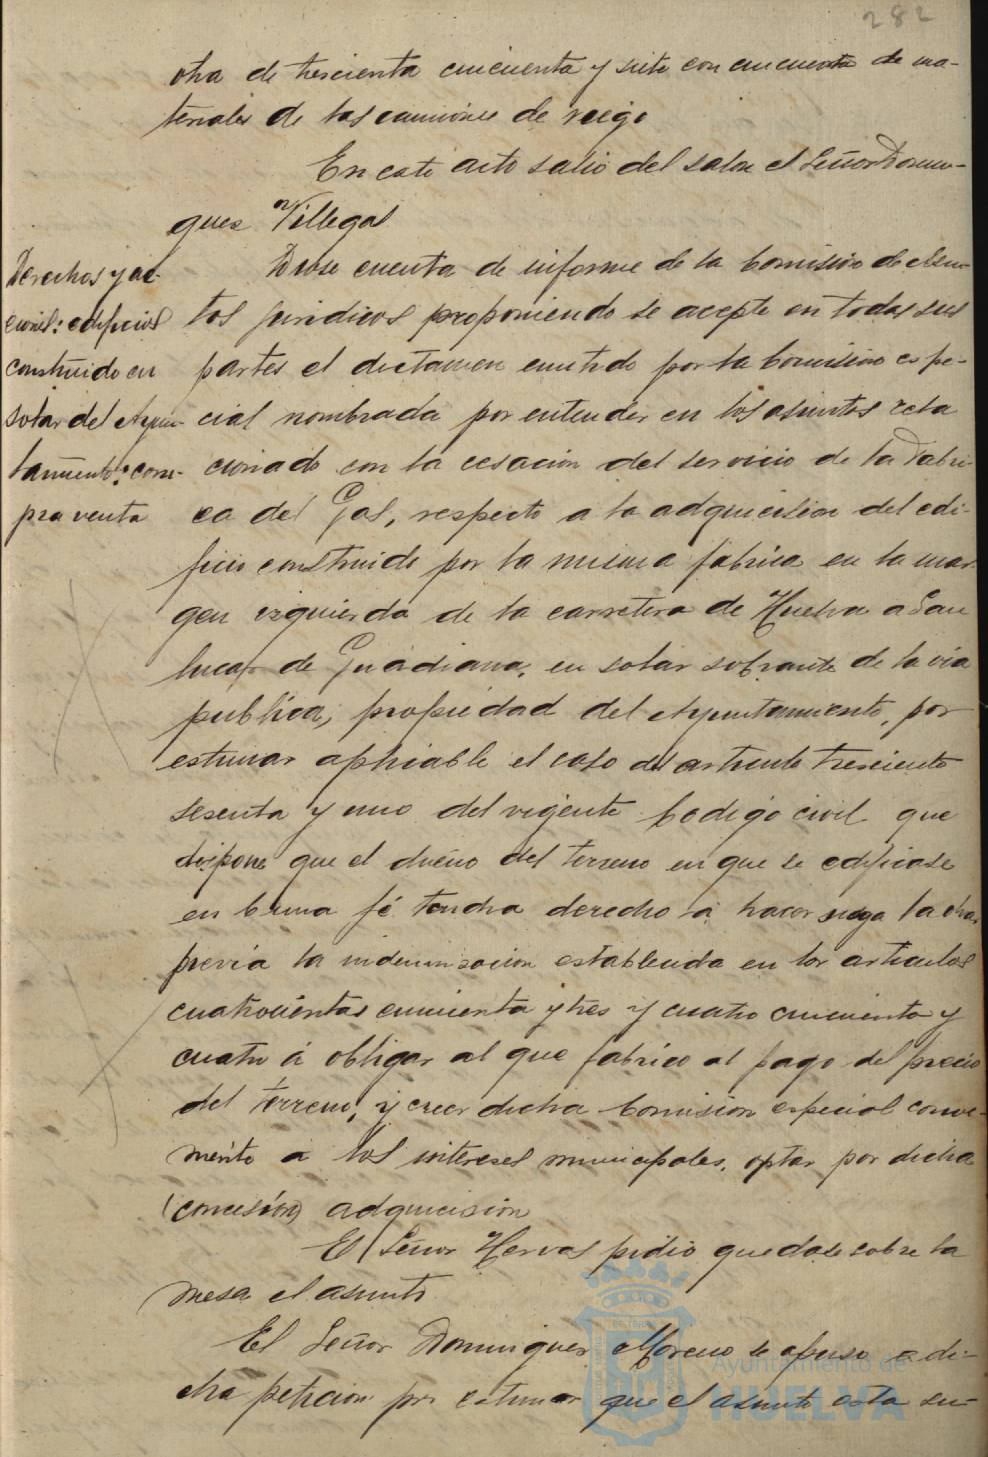 282
otra de trescienta cincuenta y siete con cincuenta de ma-
teriales de los camiones de riego
En este acto salió del salon el Señor Domin-
guez Villegas
Derechos y ac-
ciones: edificios
construido en
solar del Ayun-
tamiento: com-
pra venta
Diose cuenta de informe de la Comision de asun-
tos juridicos proponiendo se acepte en todas sus
partes el dictamen emitido por la Comision espe-
cial nombrada por entender en los asuntos rela
cionado con la cesacion del servicio de la Fabri-
ca del Gas, respecto a la adquicision del edi-
ficio construido por la misma fabrica en la mar-
gen izquierda de la carretera de Huelva a San
lucar de Guadiana, en solar sobrante de la via
publica, propiedad del Ayuntamiento, por
estimar aplicable el caso del articulo tresciento
sesenta y uno del vigente Codigo civil que
dispone que el dueño del terreno en que se edificase
en buena fé tendra derecho á hacer suya la obra
previa la indemnisacion establecida en los articulos
cuatrocientas cincuenta y tres y cuatro cincuenta y
cuatro á obligar al que fabrico al pago del precio
del terreno, y creer dicha Comision especial conve-
niente a los intereses municipales, optar por dicha
(concesión) adquicision
El Señor Hervas pidio quedase sobre la
mesa el asunto
El Señor Dominguez Moreno se opuso a di-
cha peticion por estimar que el asunto esta su-
Ayuntamiento de
HUELVA